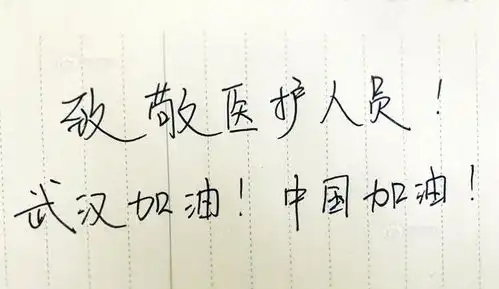 致敬医护人员!
武汉加油!中国加油!